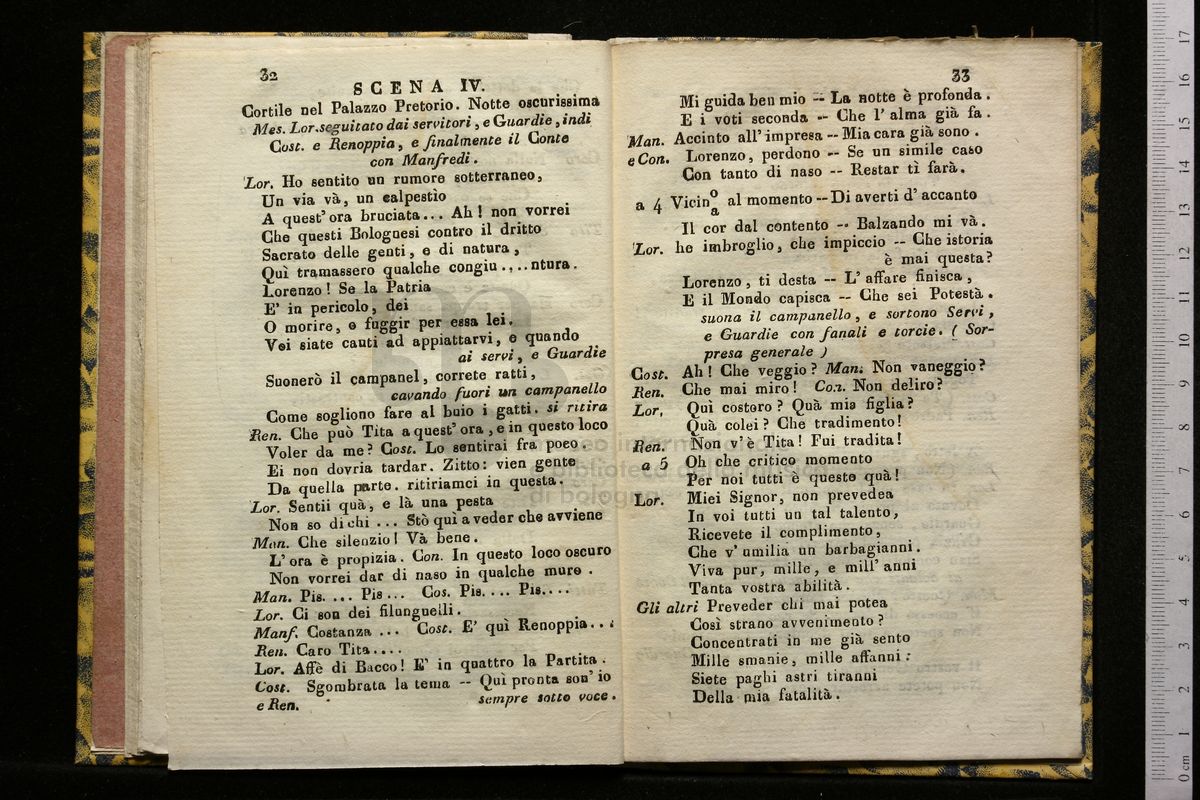 32
SCENA IV.
Cortile nel Palazzo Pretorio. Notte oscurissima
Mes. Lor.seguitato dai servitori, e Guardie, indi
Cost. e Renoppia, e finalmente il Conte
con Manfredi.
Lor. Ho sentito un rumore sotterraneo,
Un via và, un calpestìo
A quest' ora bruciata... Ah! non vorrei
Che questi Bolognesi contro il dritto
Sacrato delle genti, e di natura,
Quì tramassero qualche congiu....ntura.
Lorenzo! Se la Patria
E' in pericolo, dei
O morire, o fuggir per essa lei.
Voi siate cauti ad appiattarvi, e quando
ai servi, e Guardie
Suonerò il campanel, correte ratti,
cavando fuori un campanello
Come sogliono fare al buio i gatti. si ritira
Ren. Che può Tita a quest' ora, e in questo loco
Voler da me? Cost. Lo sentirai fra poco.
Ei non dovria tardar. Zitto: vien gente
Da quella parte. ritiriamci in questa.
Lor. Sentii quà, e là una pesta
Non so di chi ... Stò qui a veder che avviene
Man. Che silenzio! Và bene.
L' ora è propizia. Con. In questo loco oscuro
Non vorrei dar di naso in qualche muro.
Man. Pis. ... Pis ... Cos. Pis.... Pis....
Lor. Ci son dei filunguelli.
Manf. Costanza ... Cost. E' quì Renoppia...
Ren. Caro Tita....
Lor. Affè di Bacco! E' in quattro la Partita.
Cost. Sgombrata la tema -- Qui pronta son' io
e Ren. sempre sotto voce.
33
Mi guida ben mio -- La notte è profonda.
E i voti seconda -- Che l' alma già fa.
Man. Accinto all' impresa -- Mia cara già sono.
e Con. Lorenzo, perdono -- Se un simile caso
Con tanto di naso -- Restar ti farà.
a 4 Vicin o/a al momento -- Di averti d' accanto
Il cor dal contento -- Balzando mi và.
Lor. he imbroglio, che impiccio -- Che istoria
è mai questa?
Lorenzo, ti desta -- L' affare finisca,
E il Mondo capisca -- Che sei Potestà.
suona il campanello, e sortono Servi,
e Guardie con fanali e torcie. ( Sor-
presa generale )
Cost. Ah! Che veggio? Man. Non vaneggio?
Ren. Che mai miro! Con. Non deliro?
Lor. Qui costoro? Quà mia figlia?
Quà colei? Che tradimento!
Ren. Non v' è Tita! Fui tradita!
a 5 Oh che critico momento
Per noi tutti è questo quà!
Lor. Miei Signor, non prevedea
In voi tutti un tal talento,
Ricevete il complimento,
Che v' umilia un barbagianni.
Viva pur, mille, e mill' anni
Tanta vostra abilità.
Gli altri Preveder chi mai potea
Così strano avvenimento?
Concentrati in me già sento
Mille smanie, mille affanni:
Siete paghi astri tiranni
Della mia fatalità.